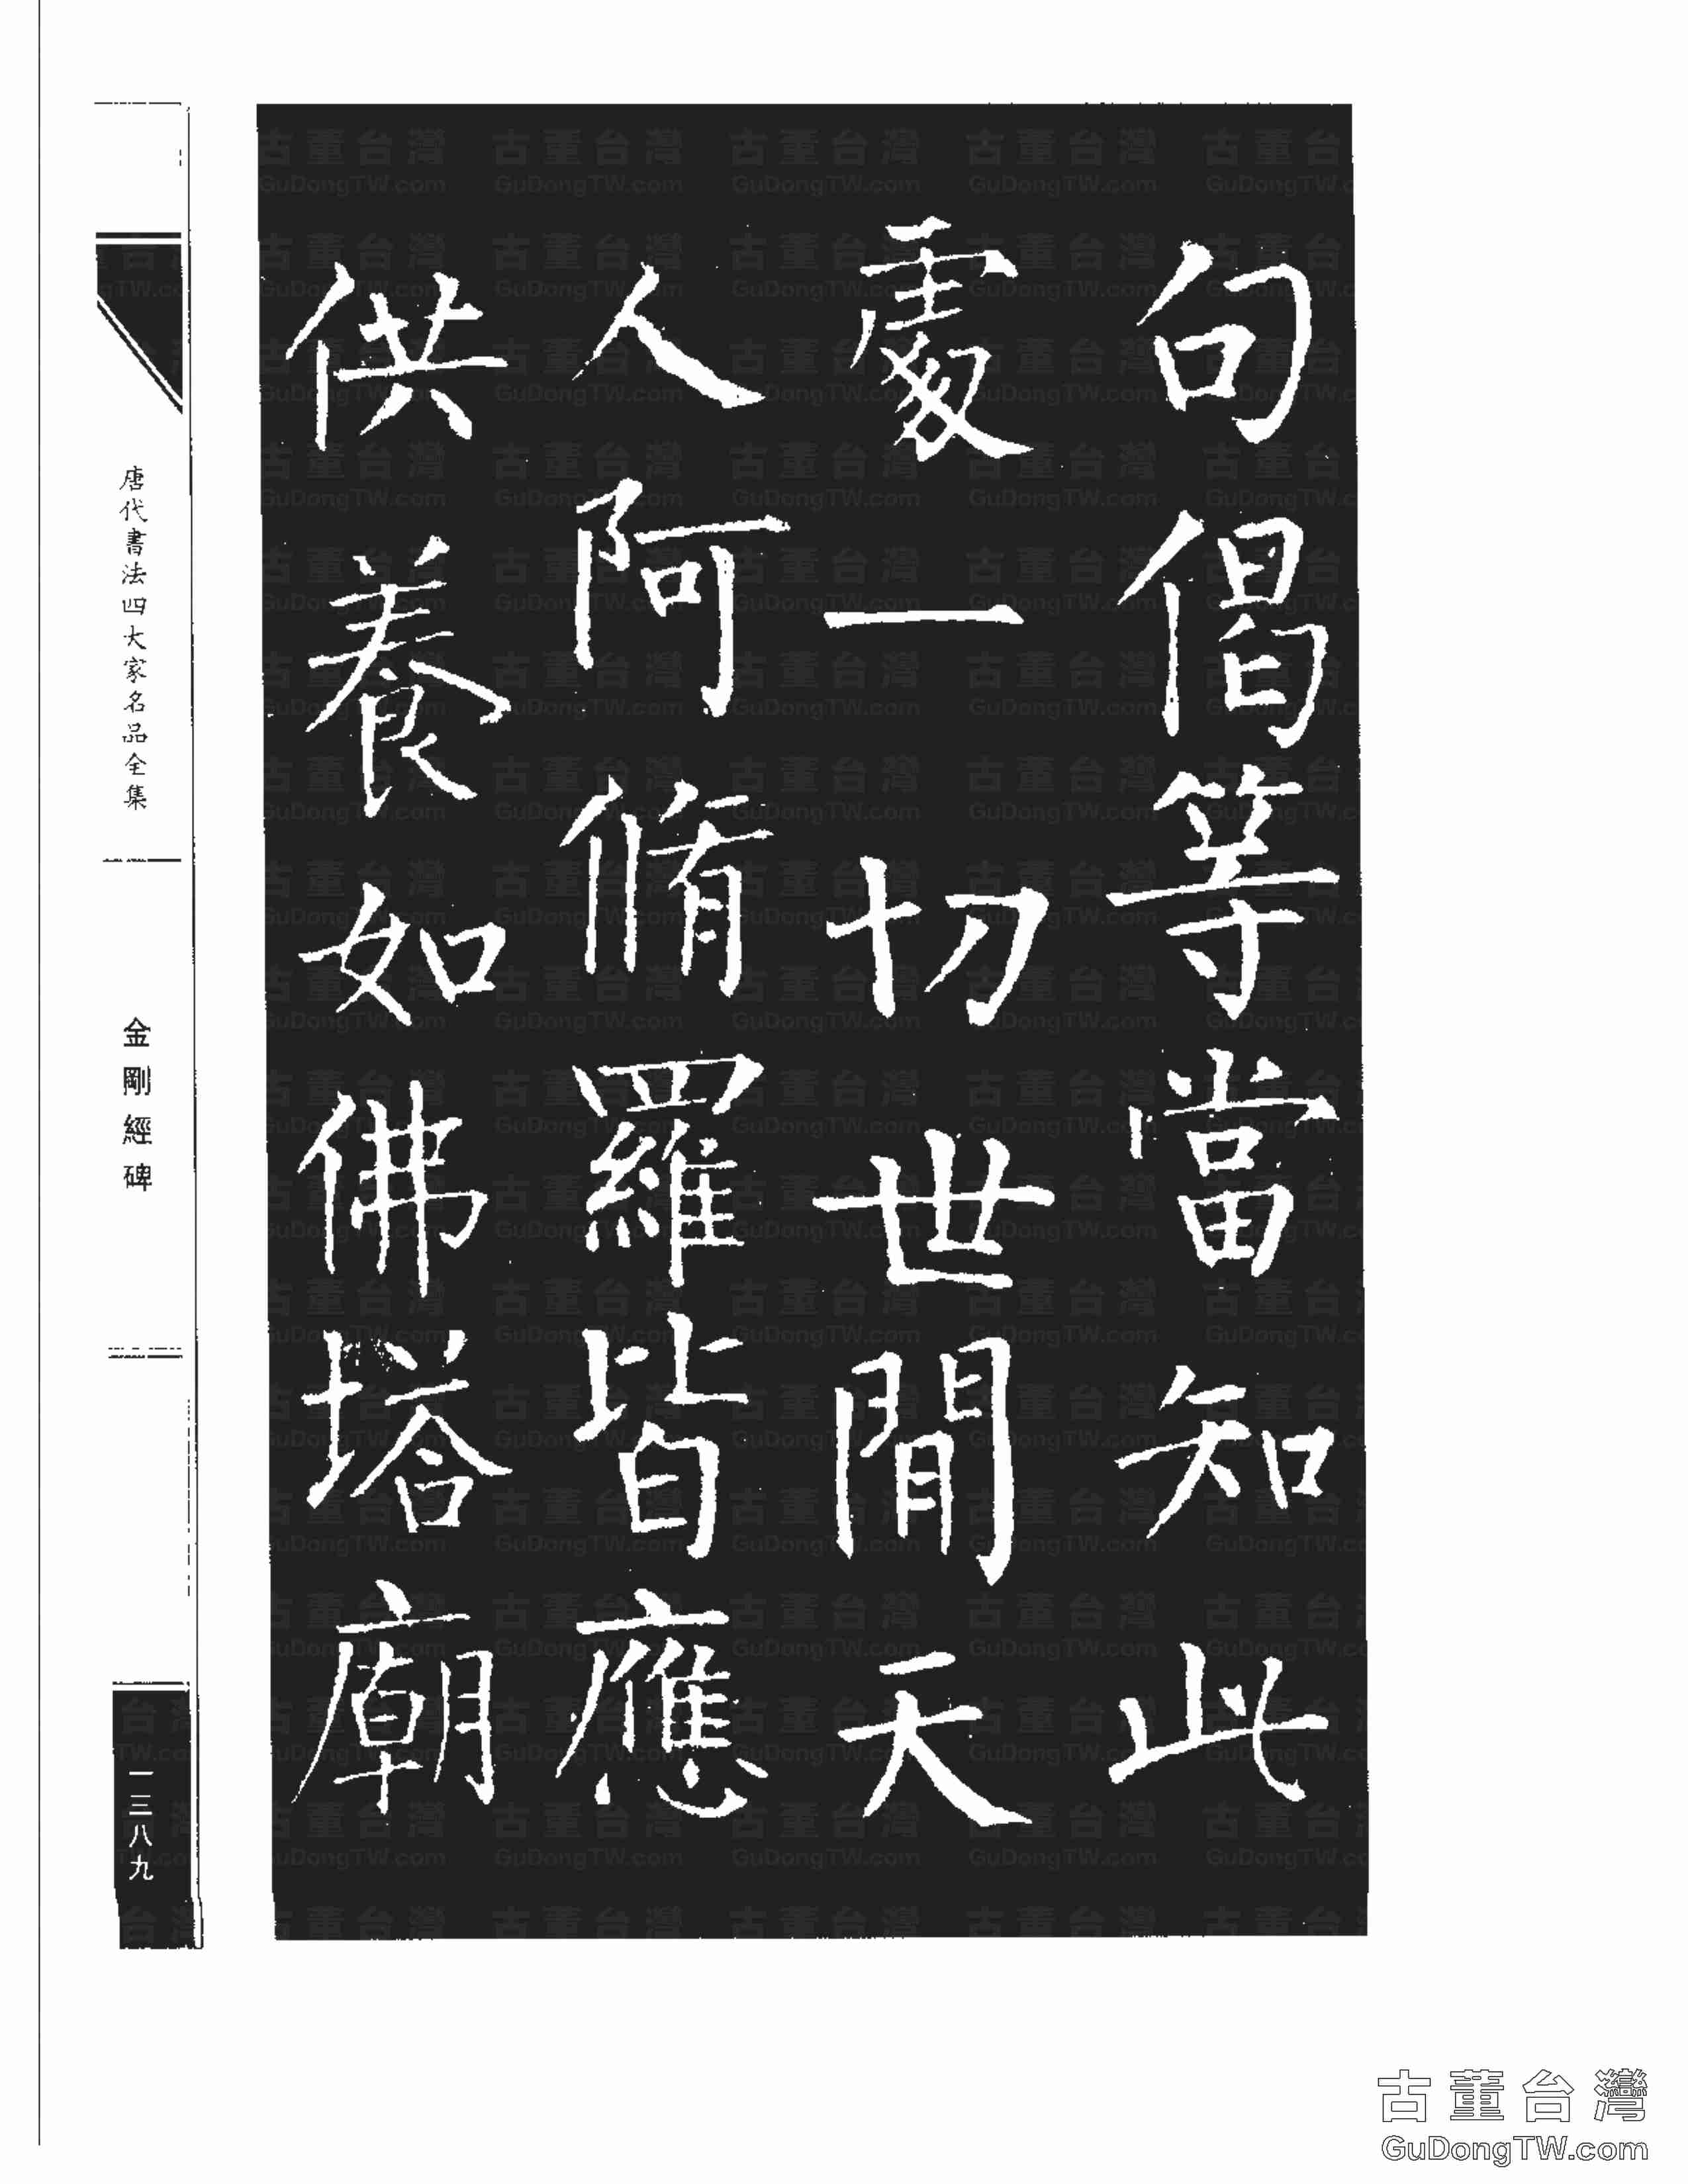 句偈等當知此
處一切世閒天
人阿脩羅皆應
供養如佛塔廟
唐代書法四大家名品全集
金剛經碑
一三八九
古董台灣
GuDongTW.com